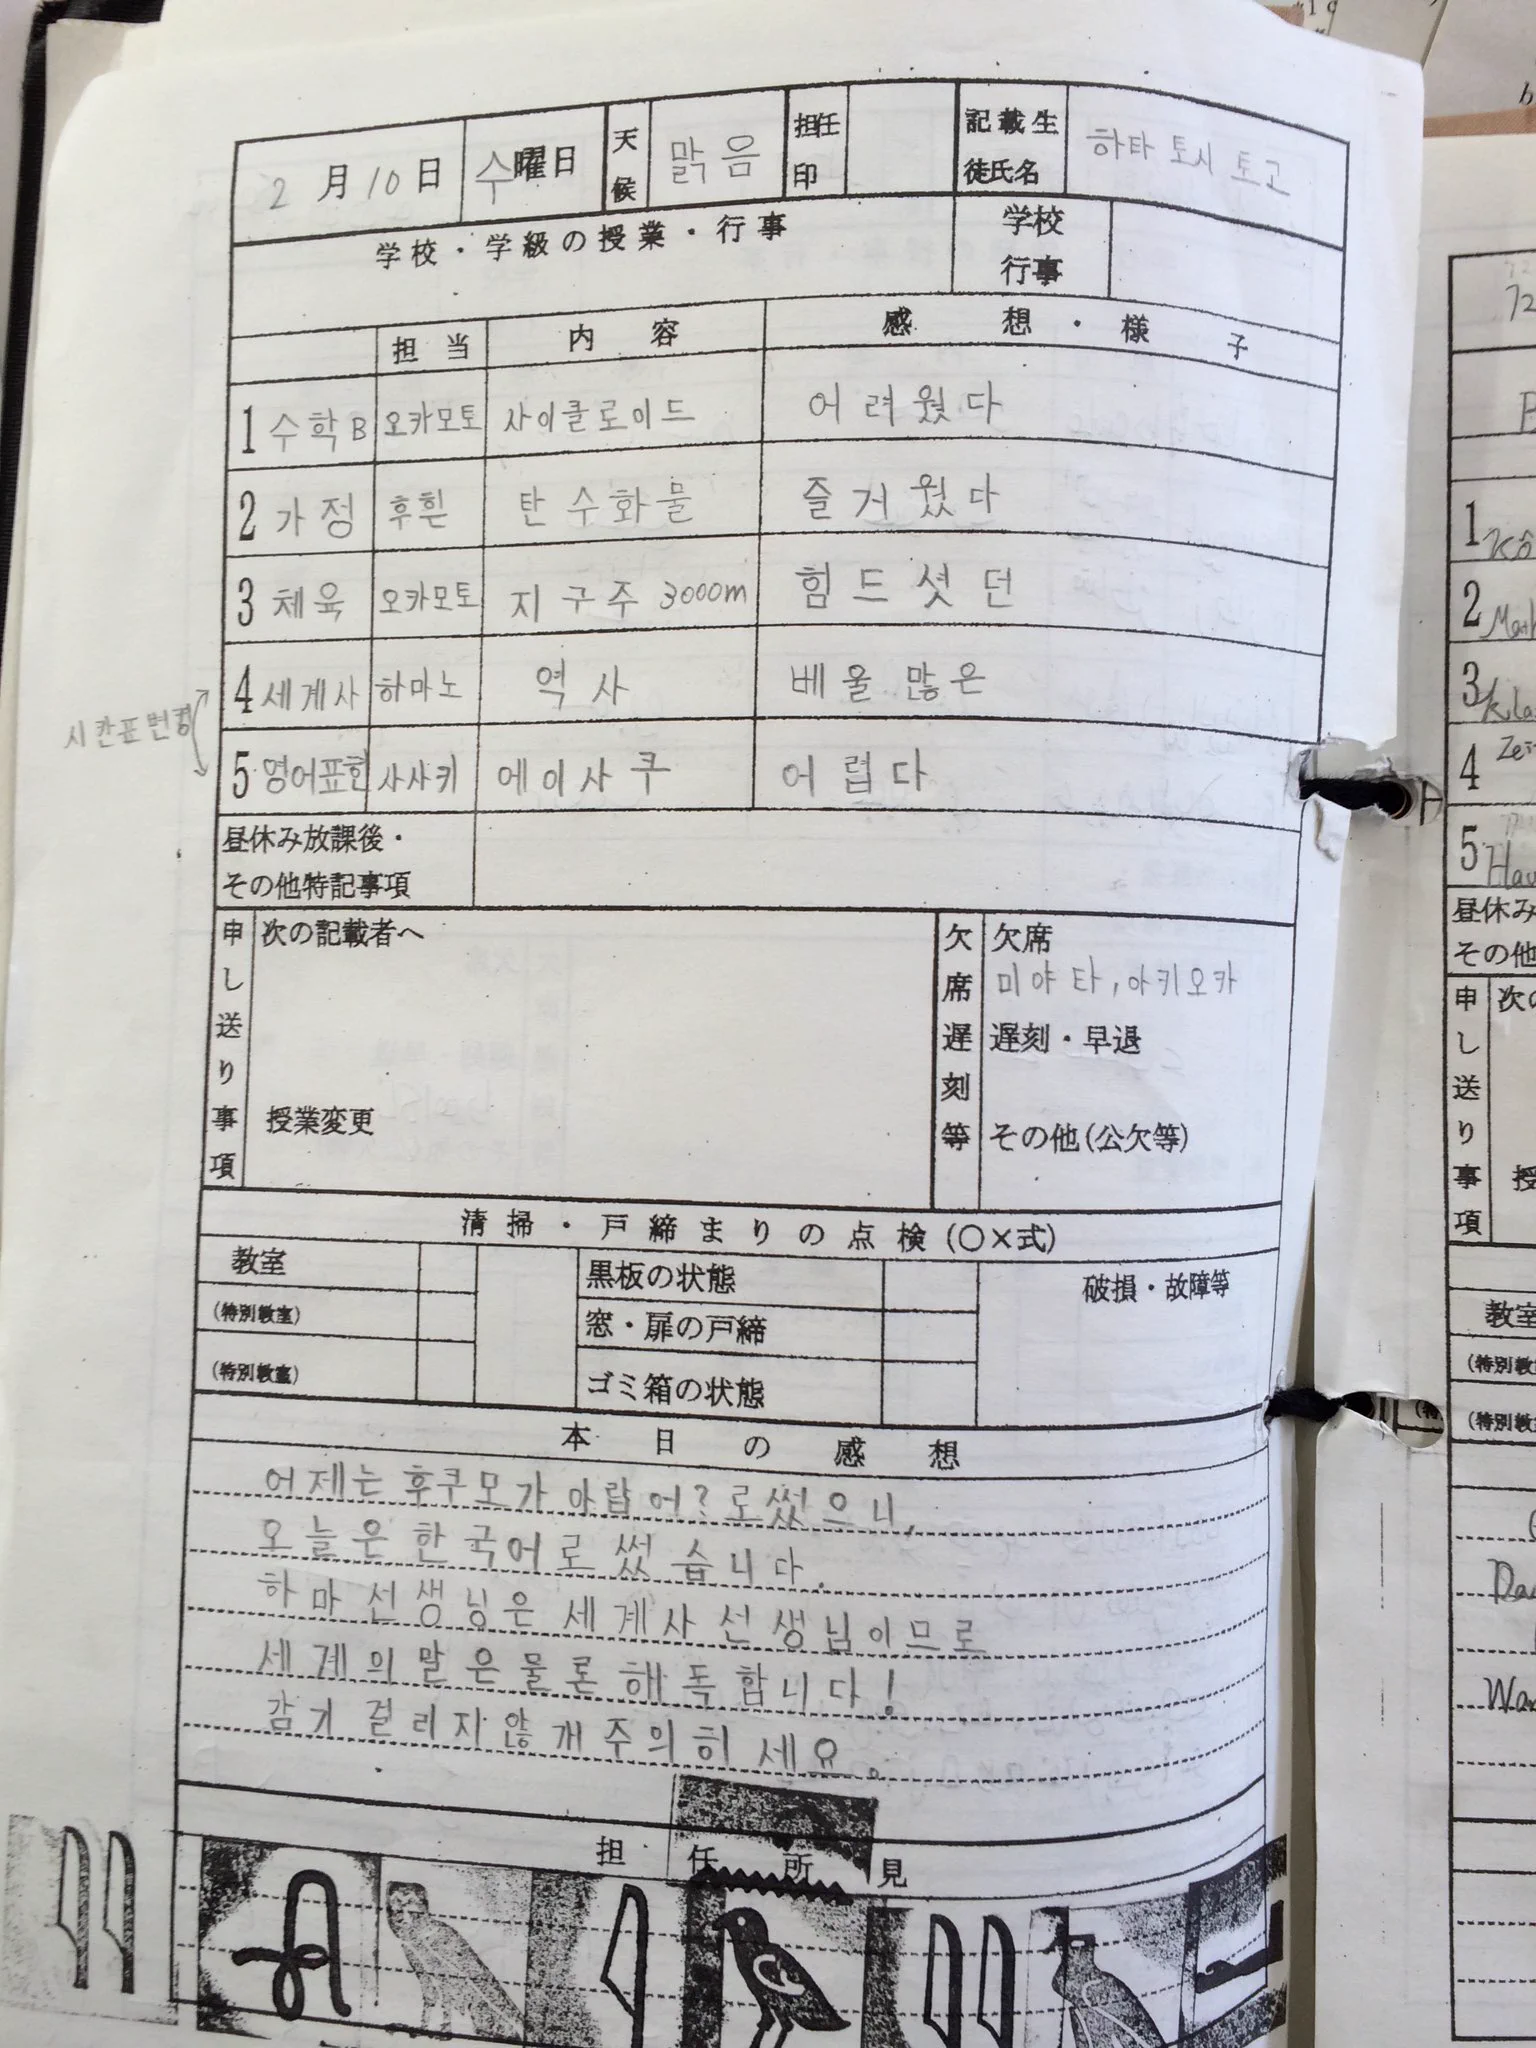 2月10日 수曜日 天候 맑음 担任印 記載生徒氏名 하타 토시 토고
学校・学級の授業・行事 学校行事
担当 内容 感想・様子
1 수학B 오카모토 사이클로이드 어려웠다
2 가정 후흰 탄수화물 즐거웠다
3 체육 오카모토 지구주 3000m 힘드셧던
4 세계사 하마노 역사 베울 많은
5 영어표현 사사키 에이사쿠 어렵다
시칸표 번경
昼休み放課後・
その他特記事項
申し送り事項 次の記載者へ
授業変更
欠席遅刻等 欠席
미야타, 아키오카
遅刻・早退
その他(公欠等)
清掃・戸締まりの点検(〇×式)
教室 黒板の状態 破損・故障等
(特別教室) 窓・扉の戸締
(特別教室) ゴミ箱の状態
本日の感想
어제는 후쿠모가 아랍어?로썼으니,
오늘은 한국어로 썼습니다.
하마선생님은 세계사 선생님이므로
세계의 말은 물론 해독합니다!
감기 걸리지않개주의히세요。
担任所見
1
2
3
4
5
昼休み
その他
申し送り事項
教室
(特別教
(特別教